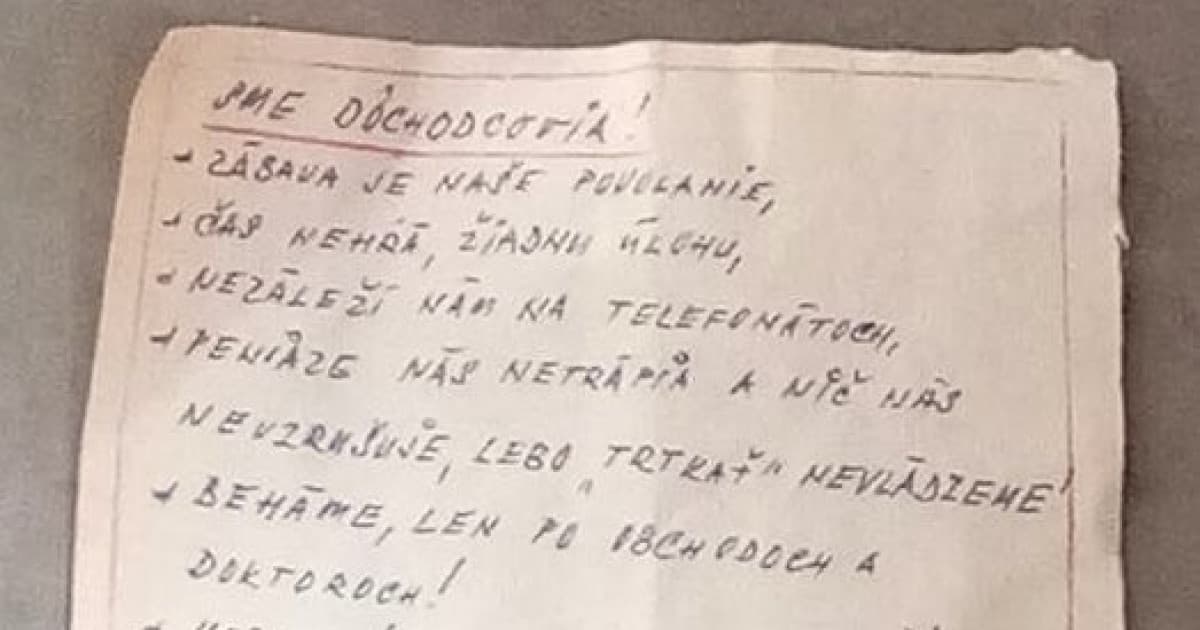 SME DÔCHODCOVIA!
- ZÁBAVA JE NAŠE POVOLANIE,
- ČAS NEHRÁ, ŽIADNU ÚLOHU,
- NEZÁLEŽÍ NÁM NA TELEFONÁTOCH,
- PENIAZE NÁS NETRÁPIA A NIČ NÁS
NEVZRUŠUJE, LEBO „TRTKAŤ" NEVLÁDZEME!
- BEHÁME, LEN PO OBCHODOCH A
DOKTOROCH!